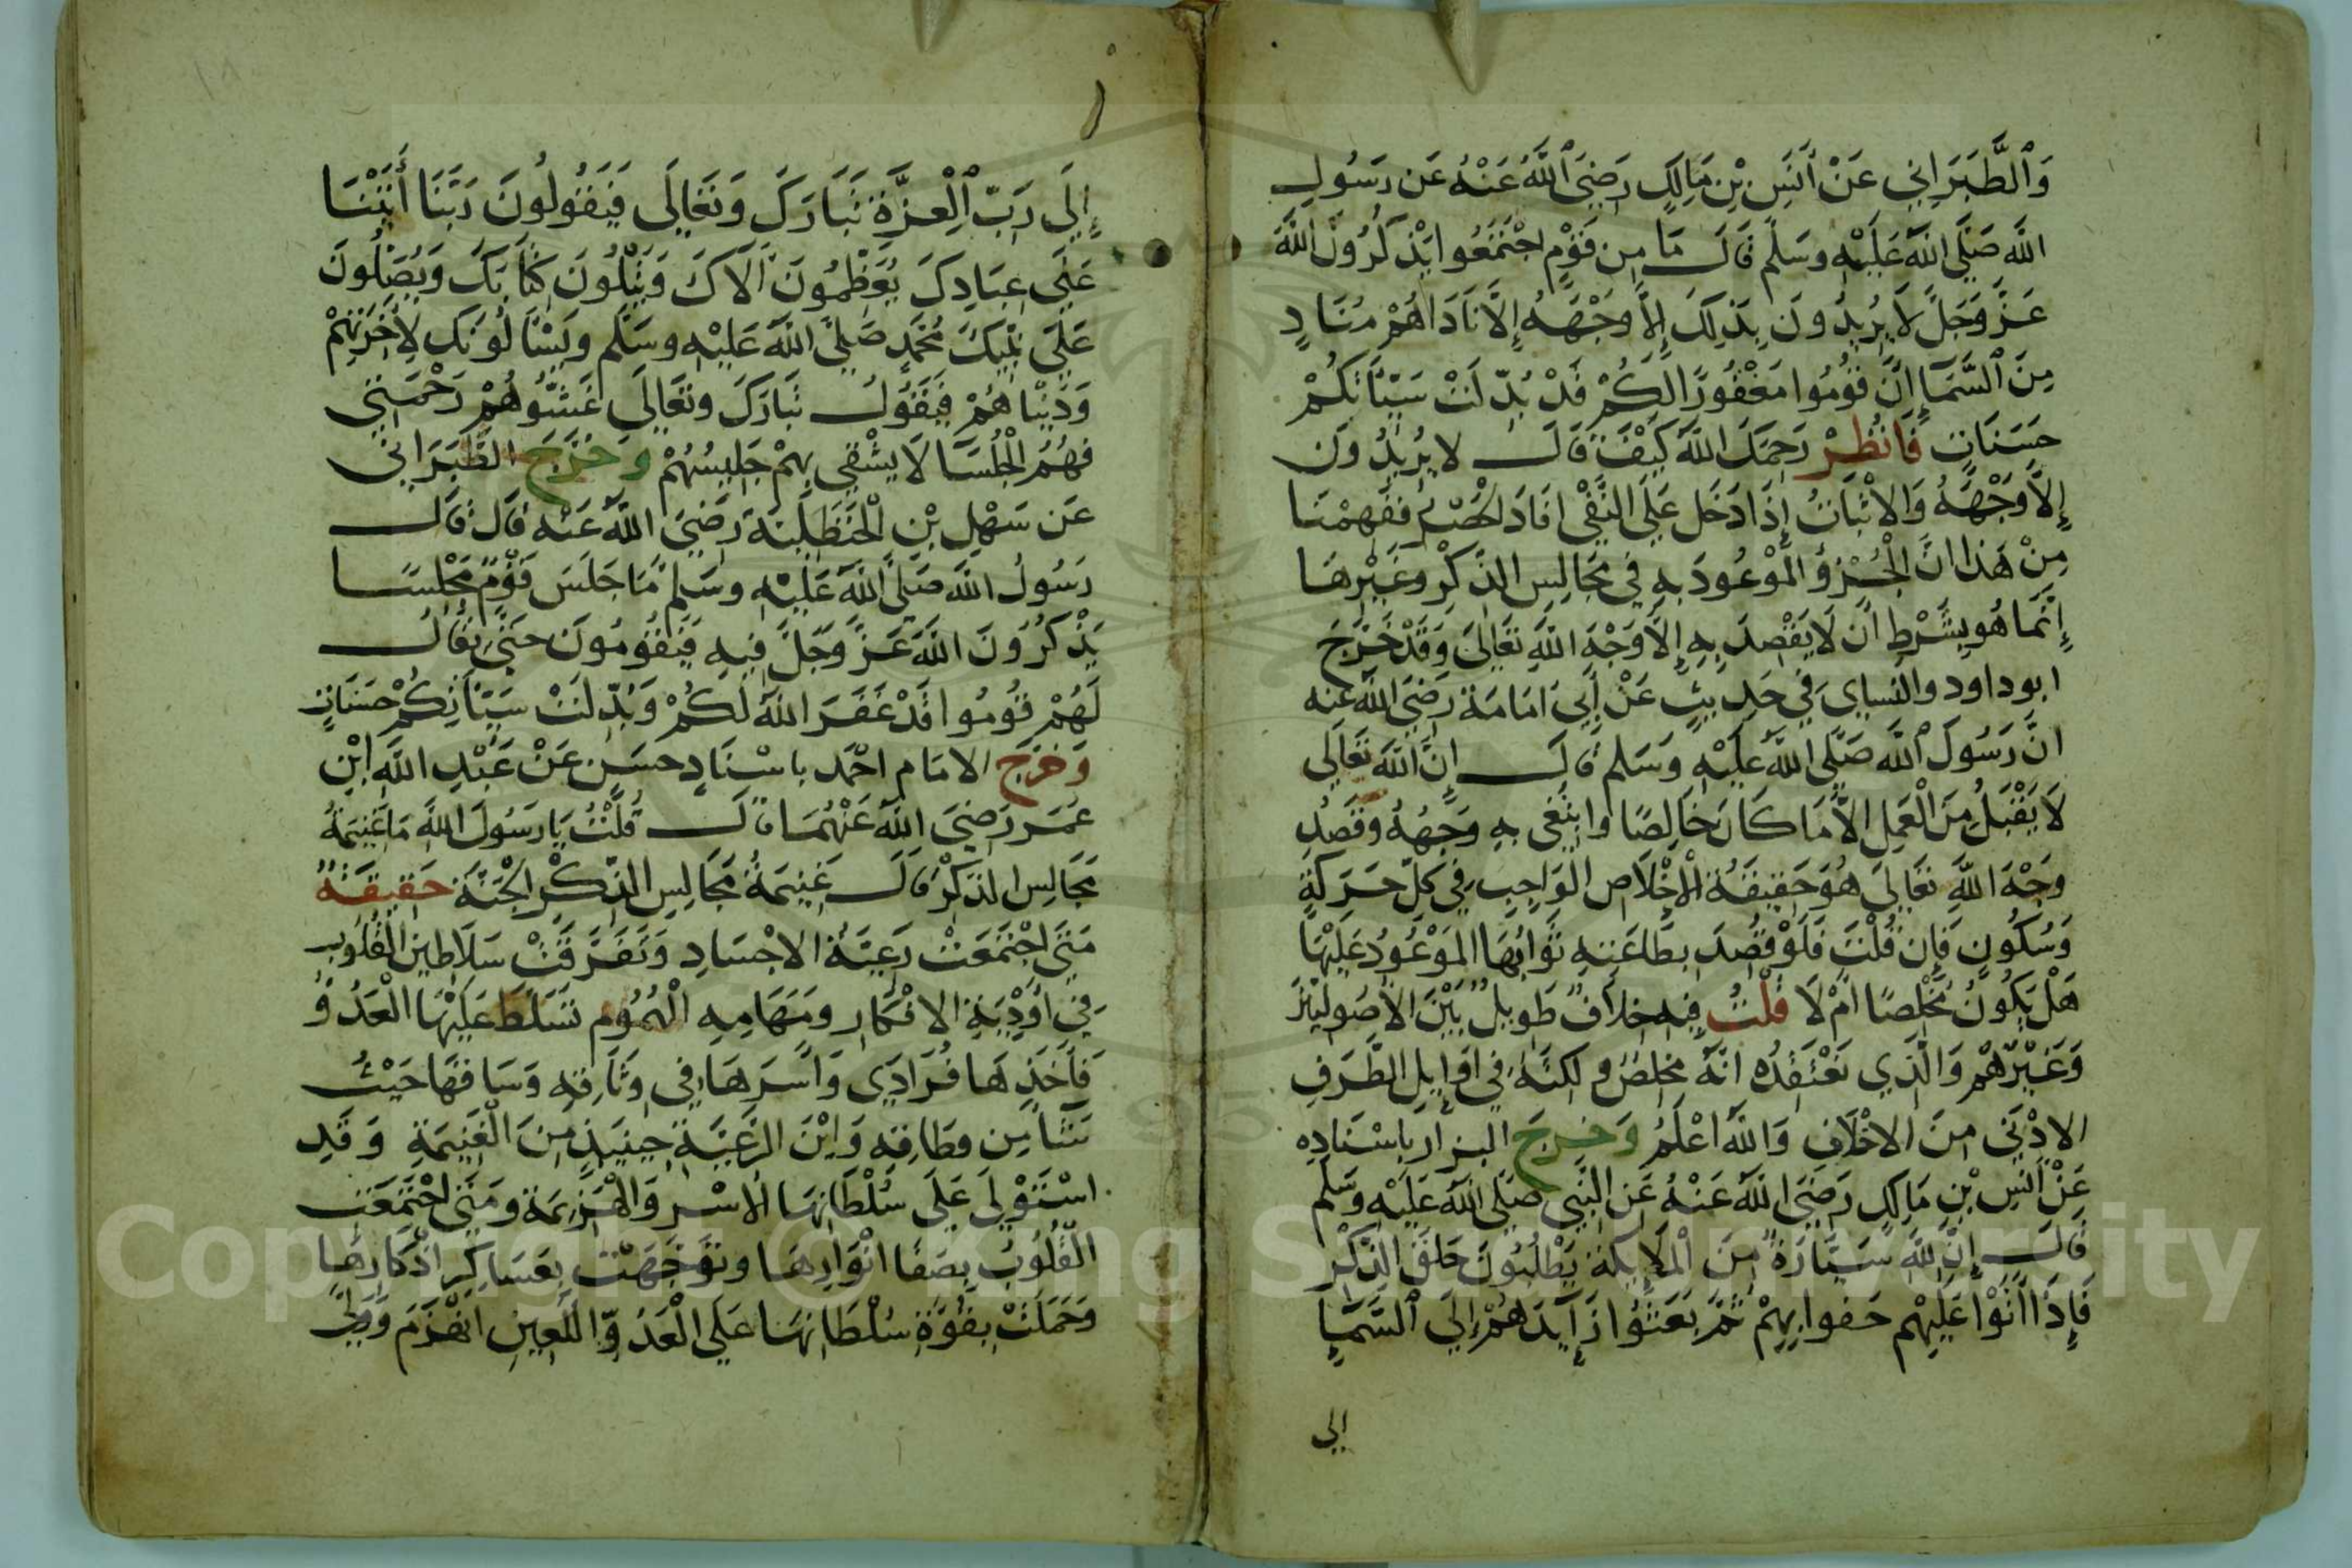 وَٱلطَّبَرَانِي عَنْ أَنَسِ بْنِ مَالِكٍ رَضِيَ ٱللَّهُ عَنْهُ عَن رَسُولِ
اللَّه صَلَّى اللَّهُ عَلَيْهِ وسَلَّم قَالَ مَا مِن قَوْمٍ اجْتَمَعُوا يَذْكُرُونَ اللَّهَ
عَزَّ وَجَلَّ لَا يُرِيدُونَ بِذَلِكَ إِلَّا وَجْهَهُ إِلَّا نَادَاهُمْ مُنَادٍ
مِنَ ٱلسَّمَاءِ انَّ قُومُوا مَغْفُورًا لَكُمْ قَدْ بُدِّلَتْ سَيِّئَاتكُمْ
حَسَنَاتٍ فَانْظُرْ رَحِمَكَ اللَّهُ كَيْفَ قَالَ لا يُرِيدُونَ
إِلَّا وَجْهَهُ وَالاثْبَاتُ إِذَا دَخَل عَلَى النَّفْي افَادَ الْحَصْرَ فَفَهِمْنَا
مِنْ هَذا انَّ الْجُزْؤَ الْمَوْعُودَ بِهِ فِي مَجَالِسِ الذِّكْرِ وغَيْرِهَا
إِنَّمَا هُو بِشَرْطِ انْ لَا يَقْصِدَ بِهِ إِلَّا وَجْهَ اللَّهِ تَعَالَى وَقَدْ خَرَّجَ
ابو داود والنساي فِي حَدِيثٍ عَنْ أَبِي امَامَة رَضِيَ اللَّهُ عَنه
انَّ رَسُولَ ٱللَّهِ صَلَّى اللَّهُ عَلَيْهِ وَسَلم قَالَ إِنَّ اللَّهَ تَعَالَي
لَا يَقْبَلُ مِنَ الْعَمَلِ الاَّ مَا كَانَ خَالِصًا وابتُغِي بِهِ وَجْهُهُ وقَصْدُ
وَجْهَ اللَّهِ تعَالَى هُوَ حَقِيقَةُ الْإِخْلَاصِ الْوَاجِبِ فِي كلِّ حَرَكَةٍ
وَسُكُونٍ فَإِن قُلْتَ فَلَوْ قَصَدَ بِطَاعَتِهِ ثَوَابُهَا الْمَوْعُودُ عَلَيْهَا
هَلْ يَكُونُ مُخْلِصًا امْ لَا قُلْتُ فِيهِ خِلَافٌ طَوِيلٌ بَيْنَ الاصُولِيِّينَ
وَغَيْرِهُمْ وَالَّذِي نَعْتَقِدُه انَّهُ مخلِصٌ ولكنَّهُ فِي اوَايِلِ الطَّرَفِ
الادْنَى مِنَ الاخْلَاصِ وَاللَّهُ اعْلَمُ وَخَرجَ البزار بِاسْنَادِه
عَنْ انَسِ بْنِ مَالِكٍ رَضِيَ اللَّهُ عَنْهُ عَنِ النَّبِي صَلَى اللَّهُ عَلَيْهِ وسَلَم
قَالَ إِنَّ لِلَّهِ سَيَّارَةً مِنَ الْمَلَايِكَةِ يَطْلُبُونَ حَلَقَ الذِّكْرِ
فَإِذَا اتَوْا عَلَيْهِم حَفوا بِهِمْ ثُمَّ بَعَثُوا رَايِدَهُمْ إِلَى ٱلسَّمَاءِ
الي
إِلَى رَبِّ ٱلْعِزَّةِ تَبَارَكَ وَتَعَالَى فَيَقُولُونَ رَبَّنَا أَتَيْنَا
عَلَى عِبَادِكَ يُعَظِّمُونَ آلَاكَ وَيَتْلُونَ كِتَابَكَ وَيُصَلُّونَ
عَلَى نَبِيِّكَ مُحَمَّدٍ صَلَّى اللَّهُ عَلَيْهِ وسَلَّم ويَسْئَالُونَك لِأخِرَتِهِمْ
وَدُنْيَاهُمْ فَيَقُولُ تَبَارَكَ وتَعَالَى غَشُّوهُمْ رَحْمَتِي
فَهُمُ الْجُلَسَا لَا يَشْقِى بِهِمْ جَلِيسُهُمْ وَخَرَّجَ الطَّبَرَانى
عَن سَهْلِ بْنِ الْحَنْظَلِيَّة رَضِيَ اللَّهُ عَنْه قَالَ قَالَ
رَسُولُ اللَّه صَلَّى اللَّهُ عَلَيْهِ وسَلم مَا جَلَسَ قَوْمٌ مَجْلِسًا
يَذْكُرُونَ اللَّهَ عَزَّ وَجَلَّ فِيهِ فَيَقُومُونَ حتَّى يُقَالُ
لَهُمْ قُومُوا قَدْ غَفَرَ اللَّهُ لَكُمْ وَبُدِّلَتْ سَيِّئَاتِكُمْ حَسَنَاتٍ
وَخَرَّجَ الامَام احْمَد باسْنَادٍ حسَنٍ عَنْ عَبْدِ اللَّهِ ابْنِ
عُمَر رَضِيَ اللَّهُ عَنْهُمَا قَالَ قُلْتُ يَا رَسُولَ اللَّه مَا غَنِيمَةُ
مَجَالِسِ الذكْرِ قَالَ غَنِيمَةُ مَجَالِسِ الذِّكْرِ الجَنَّةَ حَقِيقَةٌ
مَتَى اجْتَمَعَتْ رَعِيَّةُ الاجْسَادِ وَتَفَرَّقَتْ سَلَاطِينَ الْقُلُوبِ
فِي أَوْدِيَةِ الافْكَارِ ومَهَامِهِ الْهُمُومِ تَسَلَّطَ عَلَيْهَا الْعَدُوُّ
فَأَخَذِهَا فُرَادَي وَاسَرَهَا فِي وَثَاقِهِ وَسَاقهَا حَيْثُ
شَاءَ مِن وِطَاقِهِ وَايْنَ الرَّعِيَّةُ حِينَيذٍ مِنَ الْغَنِيمَةِ وَقَدِ
اسْتَوْلَى عَلَى سُلْطَانِهَا الاسْر وَالْهَزِيمَة ومَتَى اجْتَمَعَتِ
الْقُلُوبُ بِصَفَا انْوَارِهَا وتَوَجَّهَتْ بِعَسَاكِرِ اذْكَارِهَا
وَحَمَلَتْ بِقُوَّةِ سُلْطَانِهَا عَلَى الْعَدُوِّ اللَّعِينِ انْهَزَمَ وَوَلَّى
Copyright © King Saud University